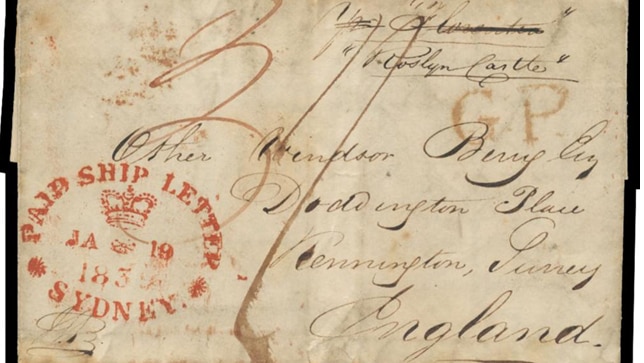 "Florentia"
"Roslyn Castle"
GP
Other Windsor Berry Esq
Doddington Place
Kennington, Surrey
England.
PAID SHIP LETTER
JA 19
183
SYDNEY